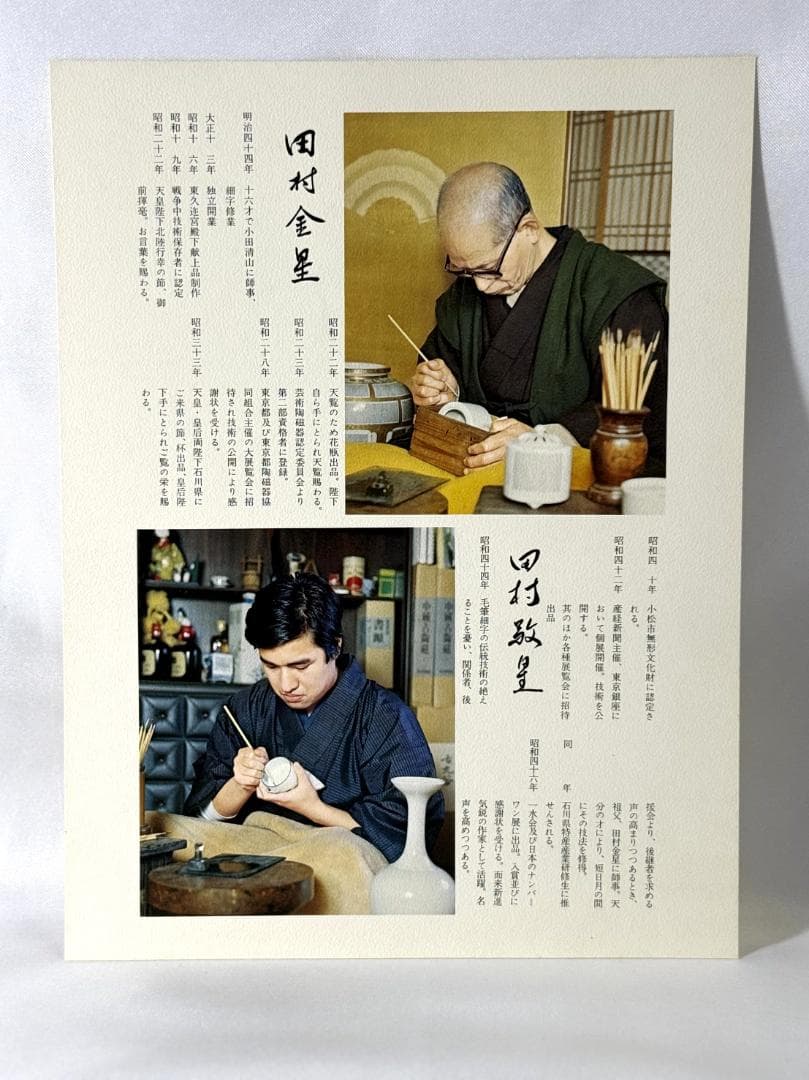 田村金星
明治四十四年 十六才で小田清山に師事、
細字修業
大正十三年 独立開業
昭和十六年 東久迩宮殿下献上品制作
昭和十九年 戦争中技術保存者に認定
昭和二十二年 天皇陛下北陸行幸の節、御
前揮毫。お言葉を賜わる。
昭和二十二年 天覧のため花瓶出品。陛下
自ら手にとられ天覧賜わる。
昭和二十三年 芸術陶磁器認定委員会より
第二部資格者に登録。
昭和二十八年 東京都及び東京都陶磁器協
同組合主催の大展覧会に招
待され技術の公開により感
謝状を受ける。
昭和三十三年 天皇・皇后両陛下石川県に
ご来県の節、杯出品、皇后陛
下手にとられご覧の栄を賜
わる。
昭和四十年 小松市無形文化財に認定さ
れる。
昭和四十二年 産経新聞主催、東京銀座に
おいて個展開催。技術を公
開する。
其のほか各種展覧会に招待
出品
田村敬星
昭和四十四年 毛筆細字の伝統技術の絶え
ることを憂い、関係者、後
援会より、後継者を求める
声の高まりつつあるとき、
祖父、田村金星に師事。天
分の才により、短日月の間
にその技法を修得。
同年 石川県特産産業研修生に推
せんされる。
昭和四十六年 一水会及び日本のナンバー
ワン展に出品。入賞並びに
感謝状を受ける。而来新進
気鋭の作家として活躍。名
声を高めつつある。